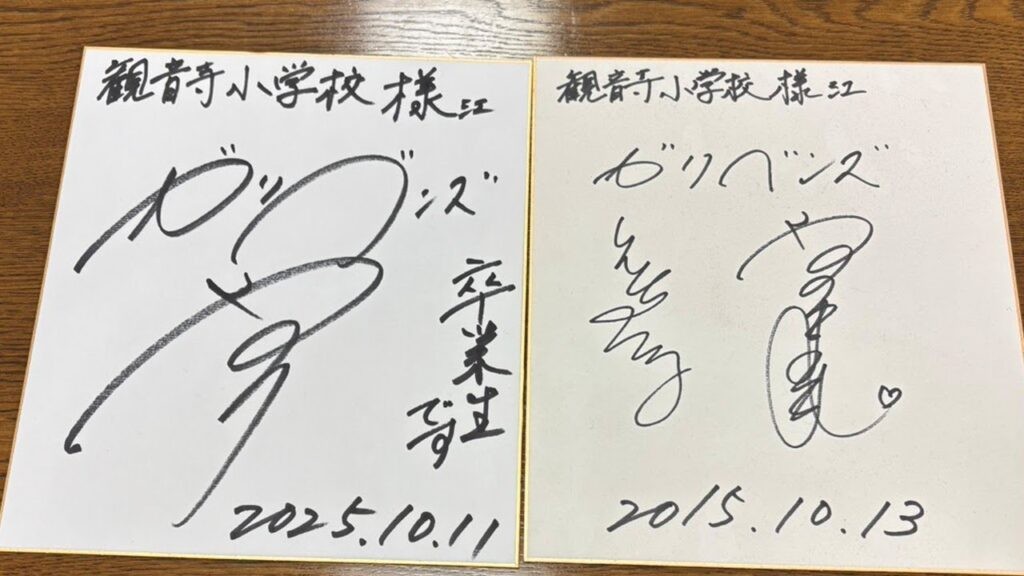 観音寺小学校 様 江
ガリベンズ
や
卒業生
です
2025.10.11
観音寺小学校 様 江
ガリベンズ
2015.10.13